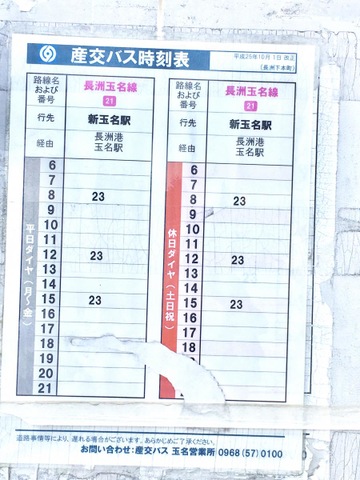 産交バス時刻表
平成25年10月1日 改正
(長洲下本町)
路線名および番号 長洲玉名線 21
行先 新玉名駅
経由 長洲港 玉名駅
平日ダイヤ(月~金)
6
7
8 23
9
10
11
12 23
13
14
15 23
16
17
18
19
20
21
路線名および番号 長洲玉名線 21
行先 新玉名駅
経由 長洲港 玉名駅
休日ダイヤ(土日祝)
6
7
8 23
9
10
11
12 23
13
14
15 23
16
17
18
21
道路事情等により、遅れる場合がございます。あらかじめご了承ください。
お問い合わせ:産交バス 玉名営業所 0968(57)0100